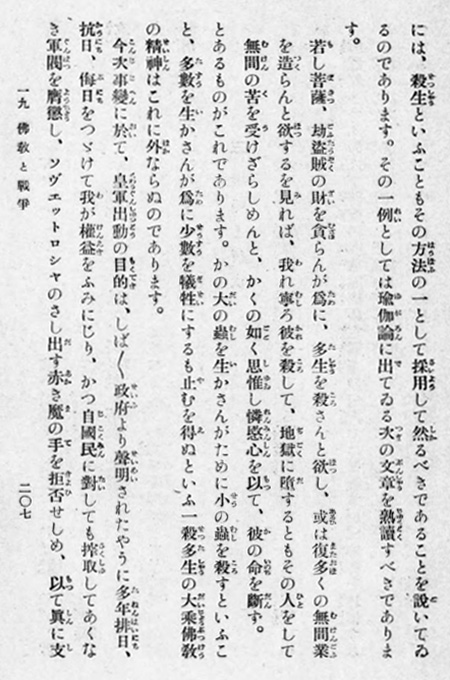 には、殺生といふこともその方法の一として採用して然るべきであることを說いてゐ
るのであります。その一例としては瑜伽論に出てゐる次の文章を熟讀すべきでありま
す。
若し菩薩 劫盜賊の財を貪らんが爲に、多生を殺さんと欲し、或は復多くの無間業
を造らんと欲するを見れば、我れ寧ろ彼を殺して、地獄に墮するともその人をして
無間の苦を受けざらしめんと、かくの如く思惟し憐愍心を以て、彼の命を斷ず。
とあるものがこれであります。かの大の蟲を生かさんがために小の蟲を殺すといふこ
と、多數を生かさんが爲に少數を犧牲にするも止むを得ぬといふ一殺多生の大乘佛敎
の精神はこれに外ならぬのであります。
今次事變に於て、皇軍出動の目的は、しば〱政府より聲明されたやうに多年排日、
抗日、侮日をつゞけて我が權益をふみにじり、かつ自國民に對しても搾取してあくな
き軍閥を膺懲し、ソヴエットロシヤのさし出す赤き魔の手を拒否せしめ、以て眞に支
一九 佛敎と戰爭
二〇七